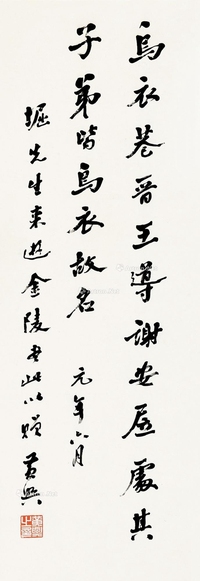 烏衣巷晉王導謝安居處其
子弟皆烏衣故名 元年六月
堀先生來遊金陵書此以贈 黃興